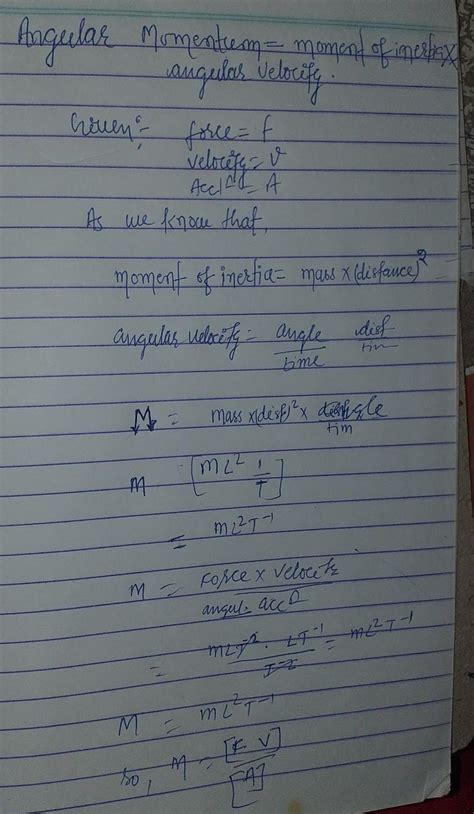 Angular Momentum = moment of inertia x
angular velocity.
Given:- force = f
velocity = v
Accl^n = A
As we know that,
moment of inertia = mass x (distance)^2
angular velocity = angle/time dist/tim
M = mass x (dist)^2 x angle/tim
M [ML^2 1/T]
= ML^2T^-1
M = Force x velocity / angul. acc^n
= MLT^-2 . LT^-1 / T^-2 = ML^2T^-1
M = ML^2T^-1
so, M = [F V]/[A]